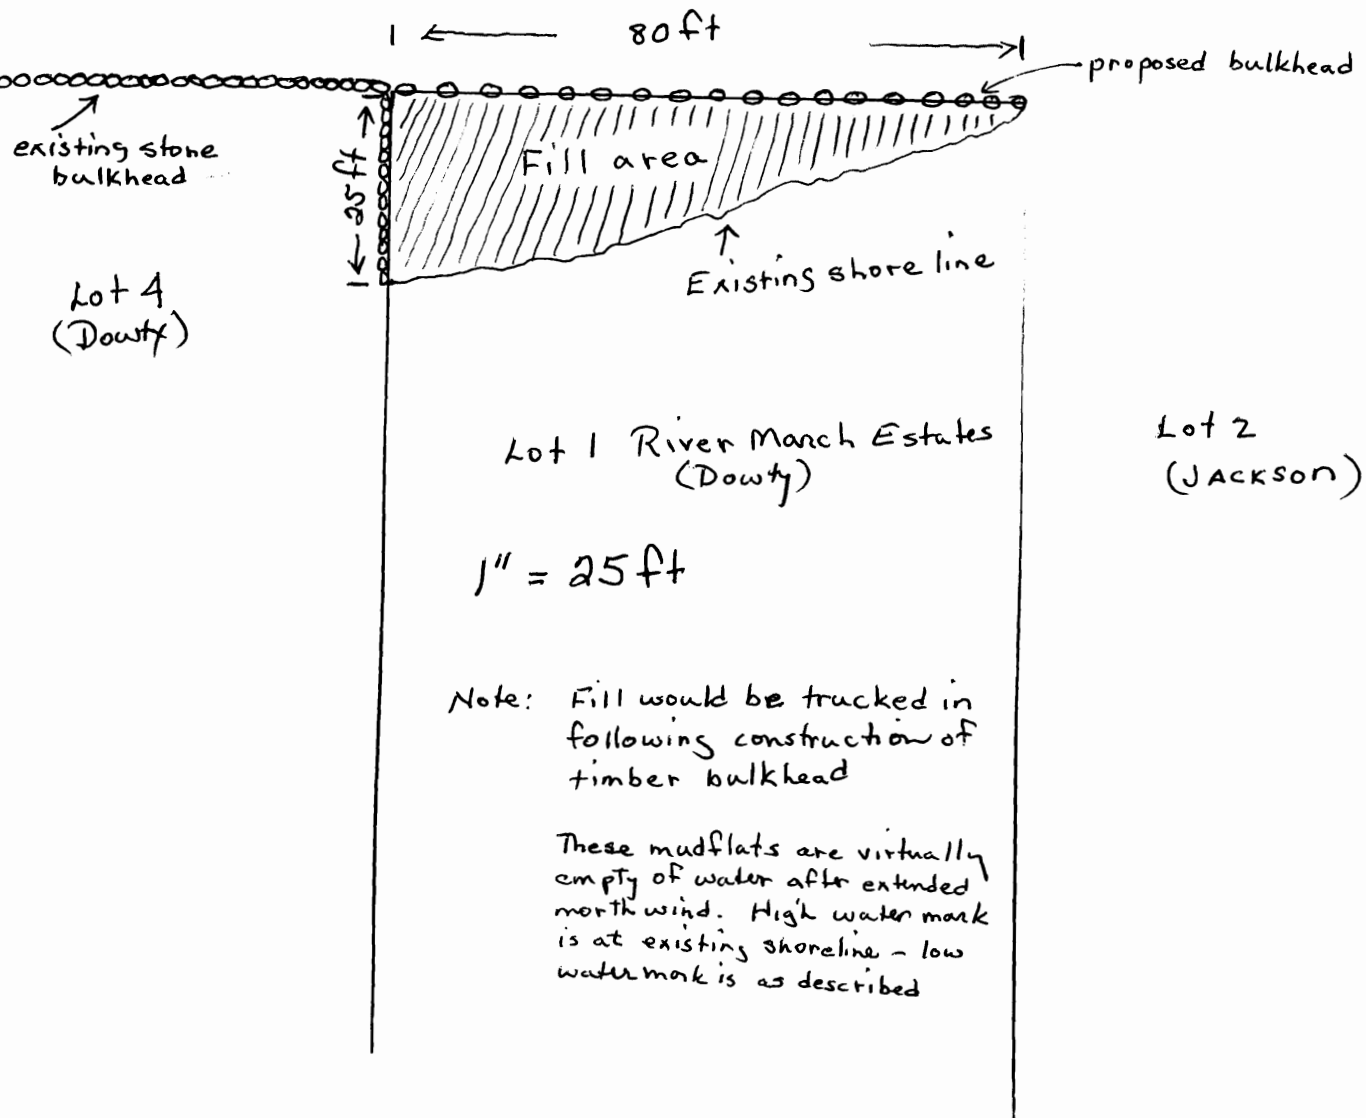 80ft
proposed bulkhead
existing stone
bulkhead
25 ft
Fill area
Existing shore line
Lot 4
(Dowty)
Lot 1 River March Estates
(Dowty)
Lot 2
(JACKSON)
1" = 25ft
Note: Fill would be trucked in
following construction of
timber bulkhead
These mudflats are virtually
empty of water after extended
north wind. High water mark
is at existing shoreline - low
water mark is as described